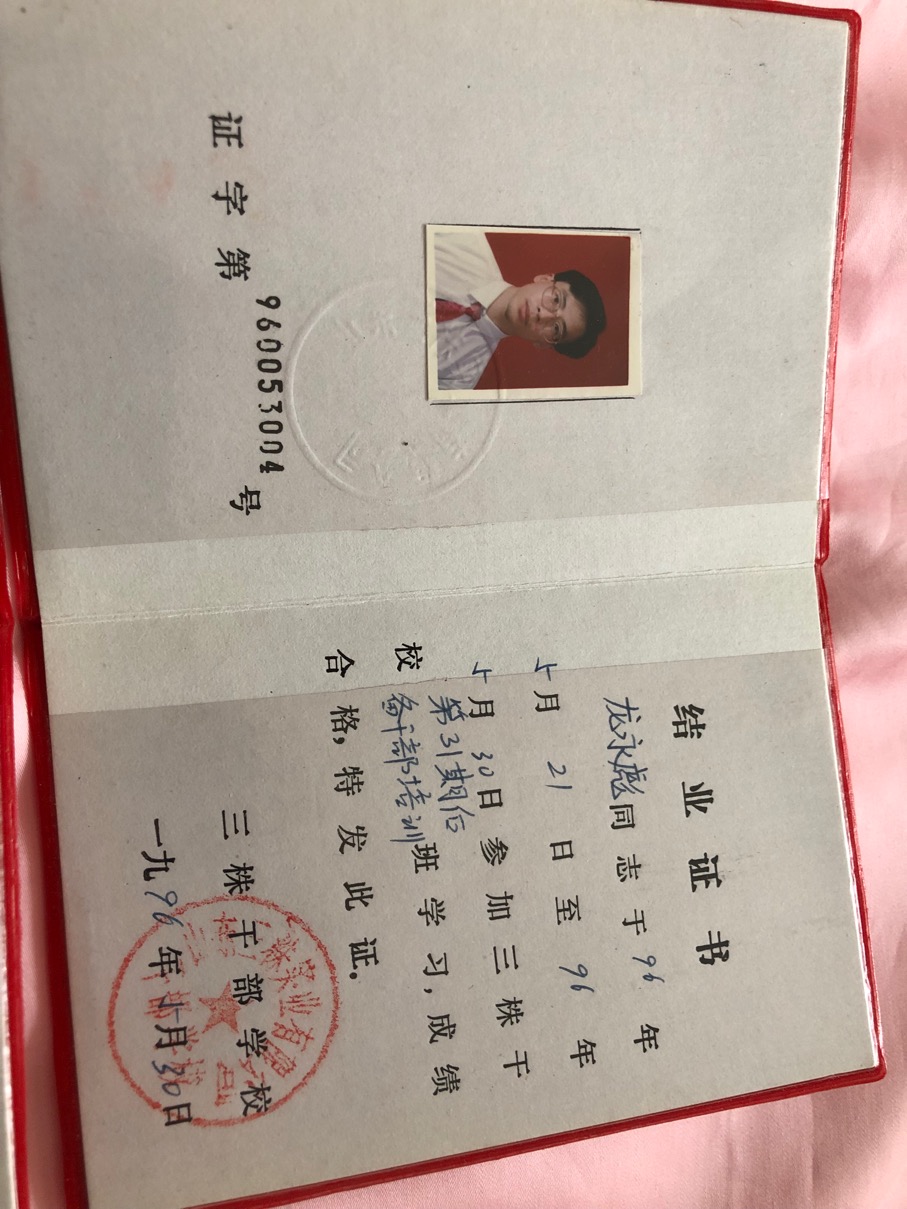 证字第9600053004号
结业证书
龙永彪同志于96年
5月21日至96年
5月30日参加三株干
校第31期后
备干部培训班学习，成绩
合格，特发此证。
三株干部学校
一九96年5月30日